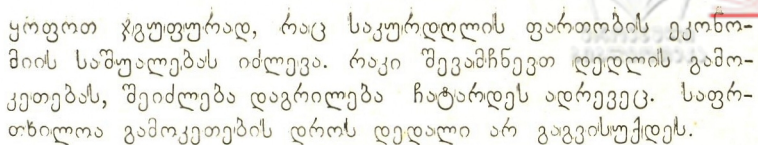 ყოფოთ ჯგუფურად, რაც საკურდღლის ფართობის ეკონო-
მიის საშუალებას იძლევა. რაკი შევამჩნევთ დედლის გამო-
კეთებას, შეიძლება დაგრილება ჩატარდეს ადრევეც. საფრ-
თხილოა გამოკეთების დროს დედალი არ გაგვისუქდეს.